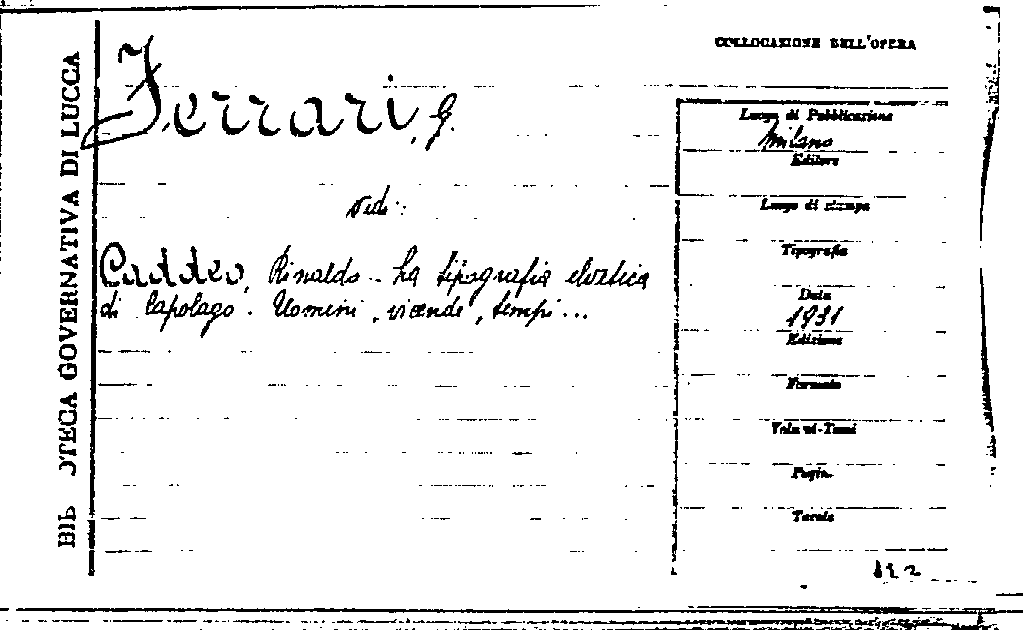 BIBLIOTECA GOVERNATIVA DI LUCCA
Ferrari, G.
vedi:
Caddeo, Rinaldo - La tipografia elvetica
di Capolago. Uomini, vicende, tempi...
COLLOCAZIONE DELL'OPERA
Luogo di Pubblicazione
Milano
Editore
Luogo di stampa
Tipografia
Data
1931
Edizione
Formato
Volumi-Tomi
Pagin.
Tavole